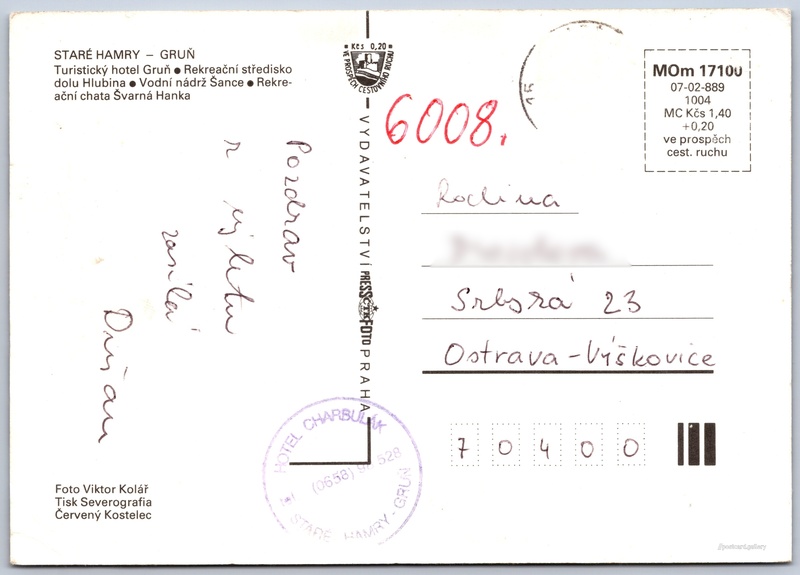 STARÉ HAMRY – GRUŇ
Turistický hotel Gruň ● Rekreační středisko
dolu Hlubina ● Vodní nádrž Šance ● Rekre-
ační chata Švarná Hanka
Pozdrav
z výletu
zasílá
Dušan
Foto Viktor Kolář
Tisk Severografia
Červený Kostelec
Kčs 0,20
VE PROSPĚCH CESTOVNÍHO RUCHU
VYDAVATELSTVÍ PRESSFOTO PRAHA
ČTK
HOTEL CHARBULÁK
(0658)
STARÉ HAMRY - GRUŇ
6008.
15
MOm 17100
07-02-889
1004
MC Kčs 1,40
+0,20
ve prospěch
cest. ruchu
Rodina
Srbská 23
Ostrava-Výškovice
70400
postcard.gallery